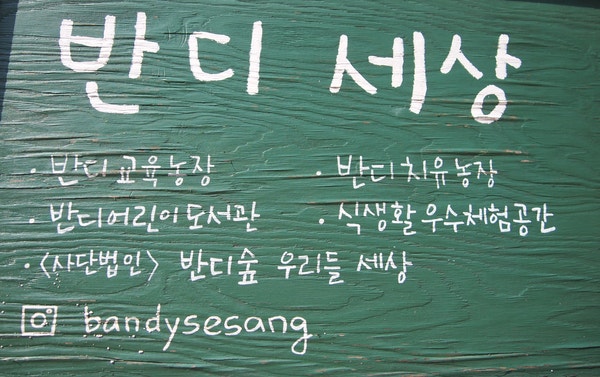 반디 세상
· 반디교육농장 · 반디치유농장
· 반디어린이도서관 · 식생활우수체험공간
· <사단법인> 반디숲 우리들 세상
bandysesang